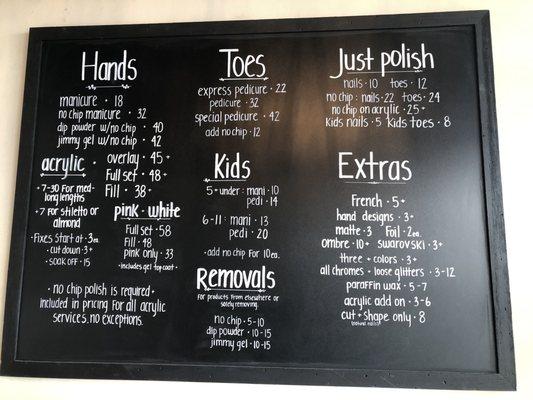 Hands
manicure · 18
no chip manicure · 32
dip powder w/no chip · 40
jimmy gel w/no chip · 42
acrylic ·
overlay · 45+
Full set · 48+
Fill · 38+
+7-30 For med-
long lengths
+7 For stiletto or
almond
·Fixes start at · 3ea.
·cut down · 3+
·soak off · 15
pink · white
Full set · 58
Fill · 48
pink only · 33
·includes gel top coat·
· no chip polish is required +
included in pricing for all acrylic
services. no exceptions.
Toes
express pedicure · 22
pedicure · 32
special pedicure · 42
add no chip · 12
Kids
5+under : mani · 10
pedi · 14
6-11 : mani · 13
pedi · 20
·add no chip For 10ea.
Removals
For products From elsewhere or
solely removing.
no chip · 5-10
dip powder · 10-15
jimmy gel · 10-15
Just polish
nails · 10 toes · 12
no chip : nails · 22 toes · 24
no chip on acrylic · 25+
kids nails · 5 kids toes · 8
Extras
French · 5+
hand designs · 3+
matte · 3 Foil · 2ea.
ombre · 10+ swarovski · 3+
three + colors · 3+
all chromes + loose glitters · 3-12
paraffin wax · 5-7
acrylic add on · 3-6
cut + shape only · 8
(natural nails)